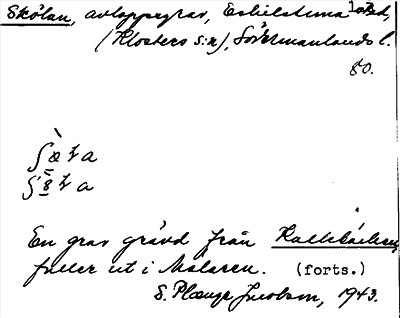 Skölan, avloppsgrav, Eskilstuna stad,
(Klosters s:n), Södermanlands l.
80.
En grav grävd från Kallebäcken,
faller ut i Mälaren. (forts.)
S. Plænge Jacobson, 1943.